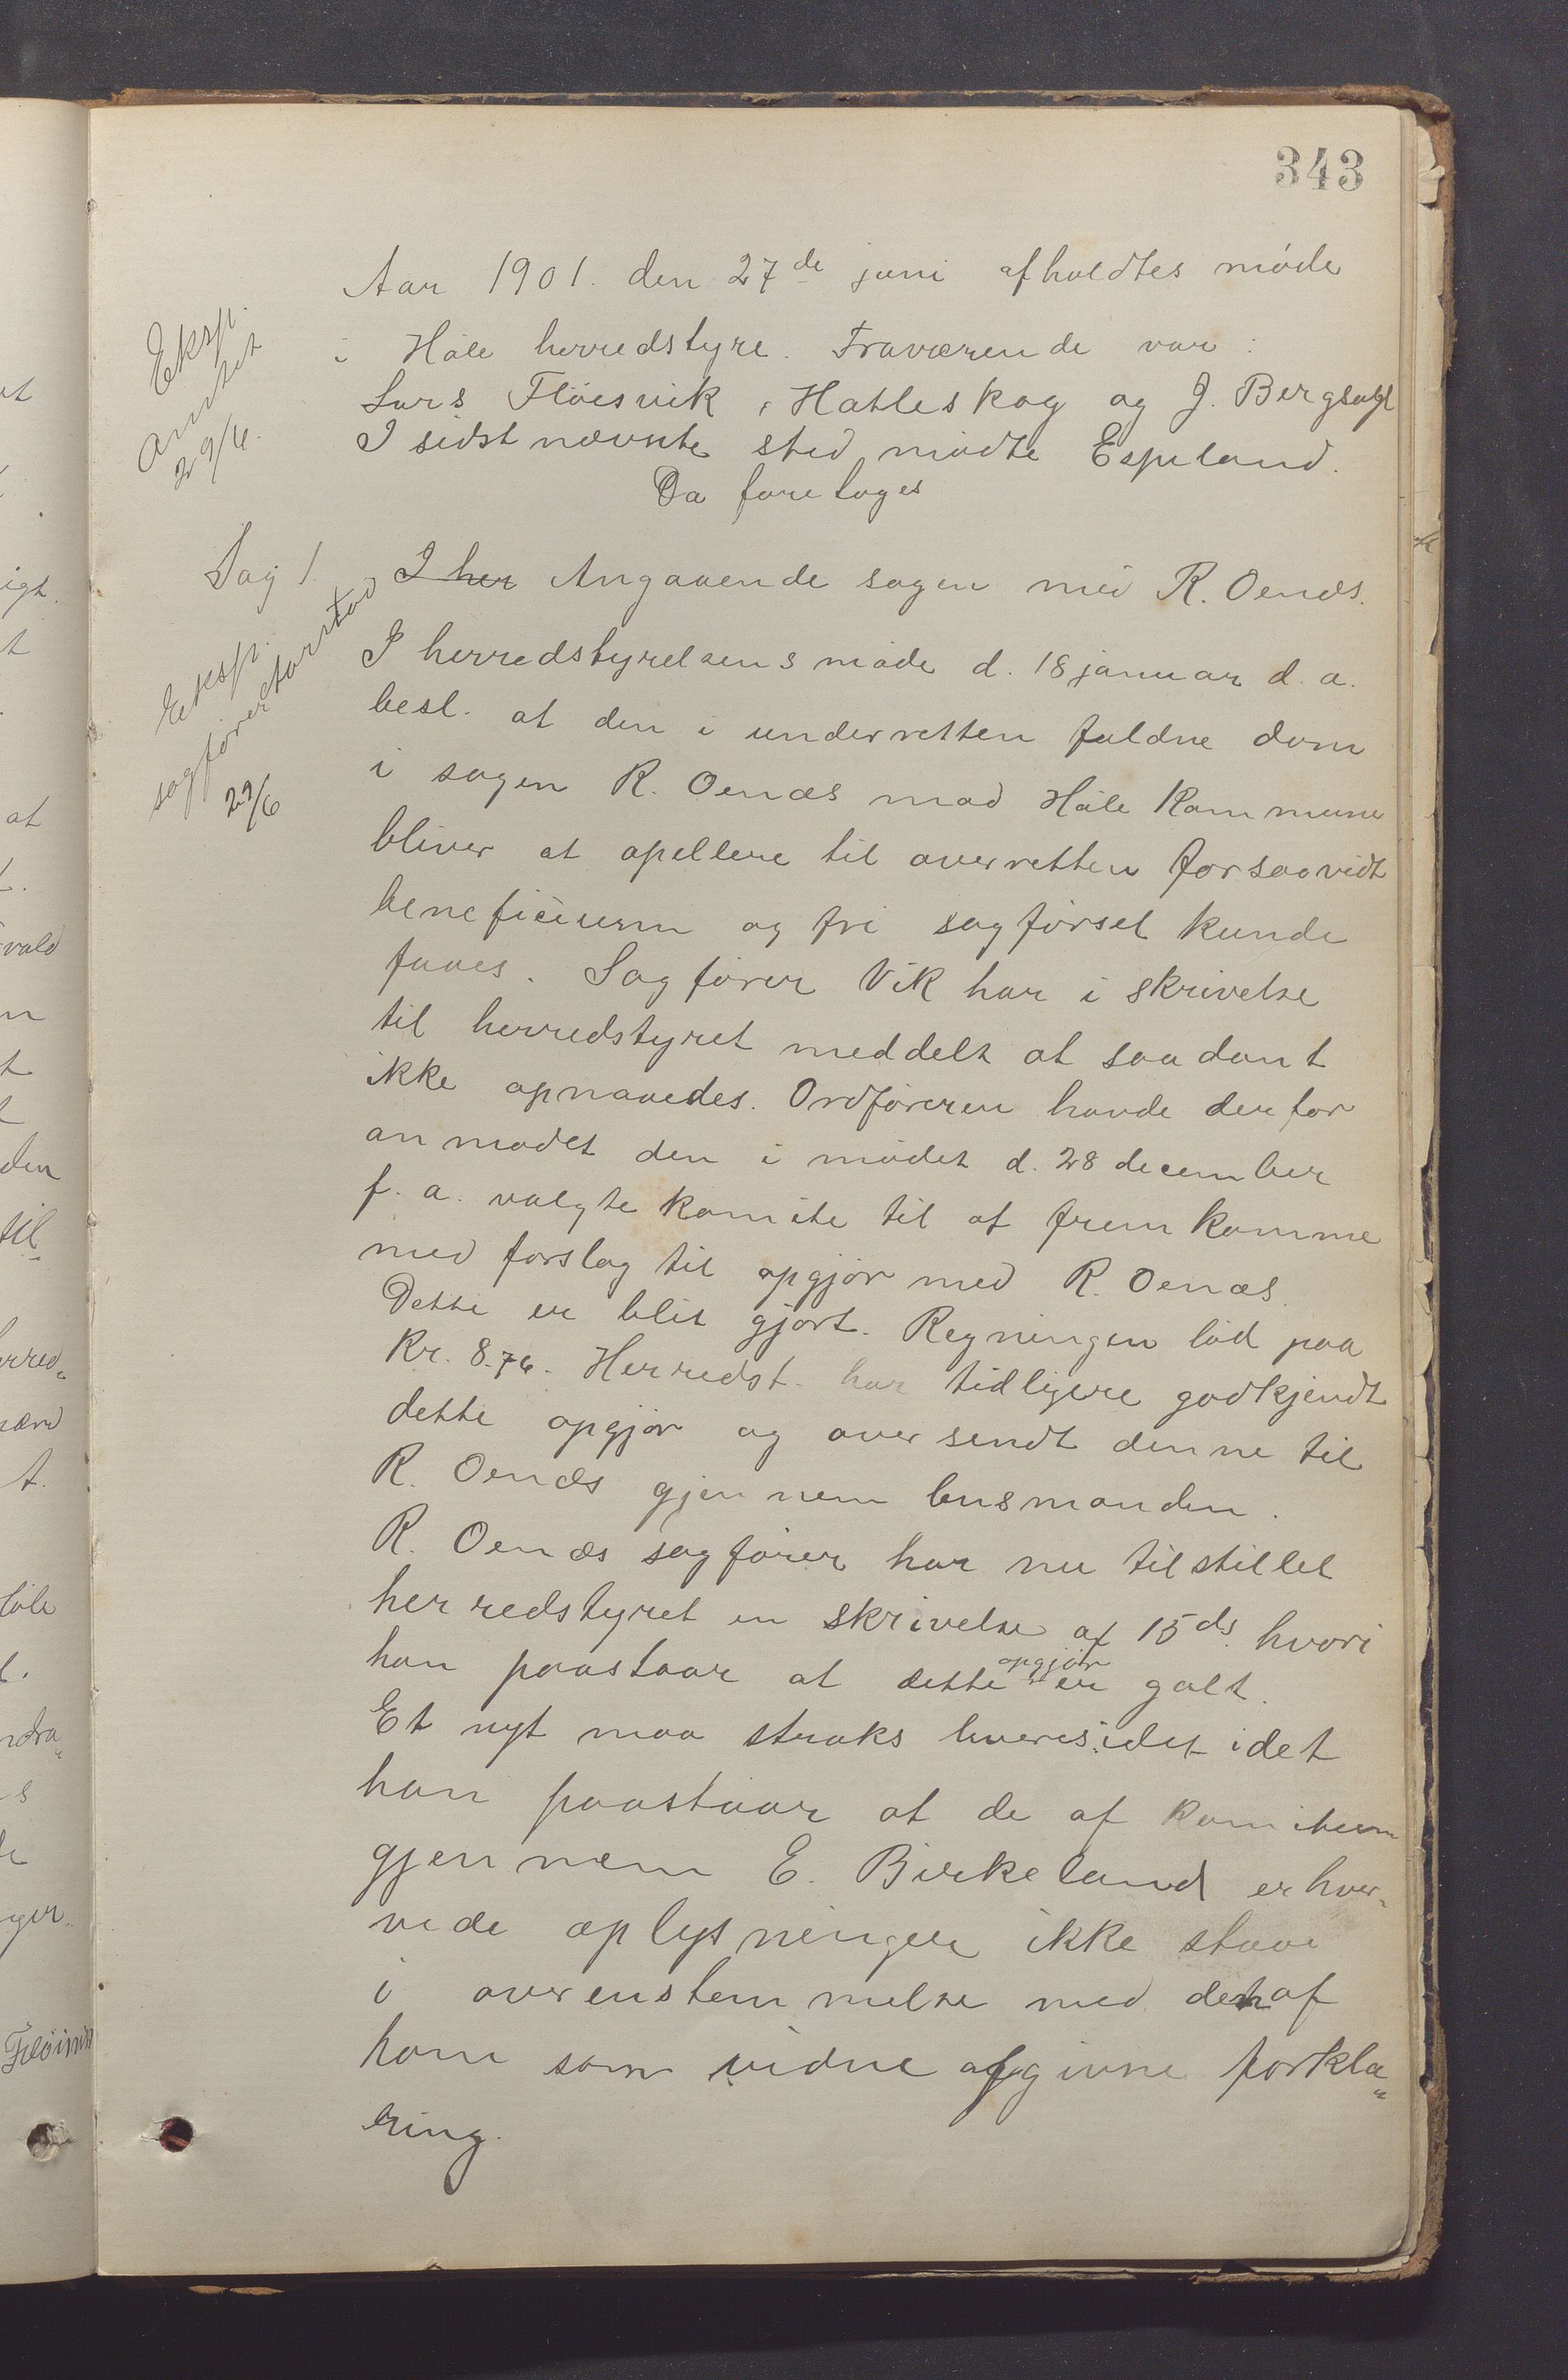 343
Aar 1901. den 27de juni afholdtes møde
i Høle herredstyre. Fraværende var:
Lars Fløisvik, Hatleskog og J. Bergsagel
I sidstnævnte sted mødte Espeland.
Da foretoges
Eksp.
amtet
29/6.
Sag 1.
I her Angaaende sagen med R. Oenæs.
Eksp.
sagfører
29/6
I herredstyrelsens møde d. 18 januar d. a.
besl. at den i underretten faldne dom
i sagen R. Oenæs mod Høle Kommune
bliver at apellere til overretten forsaavidt
beneficium og fri sagførsel kunde
faaes. Sagfører Vik har i skrivelse
til herredstyret meddelt at saadant
ikke opnaaedes. Ordføreren havde derfor
anmodet den i mødet d. 28 december
f. a. valgte komite til at fremkomme
med forslag til opgjør med R. Oenæs.
Dette er blit gjort. Regningen lød paa
Kr. 8.76. Herredst. har tidligere godkjendt
dette opgjør og oversendt denne til
R. Oenæs gjennem lensmanden.
R. Oenæs sagfører har nu tilstillet
herredstyret en skrivelse af 15 ds. hvori
han paastaar at dette opgjør er galt.
Et nyt maa straks idet
han paastaar at de af komiteen
gjennem E. Birkeland erhver-
vede oplysninger ikke staar
i overenstemmelse med den af
ham som vidne afgivne forkla-
ring.